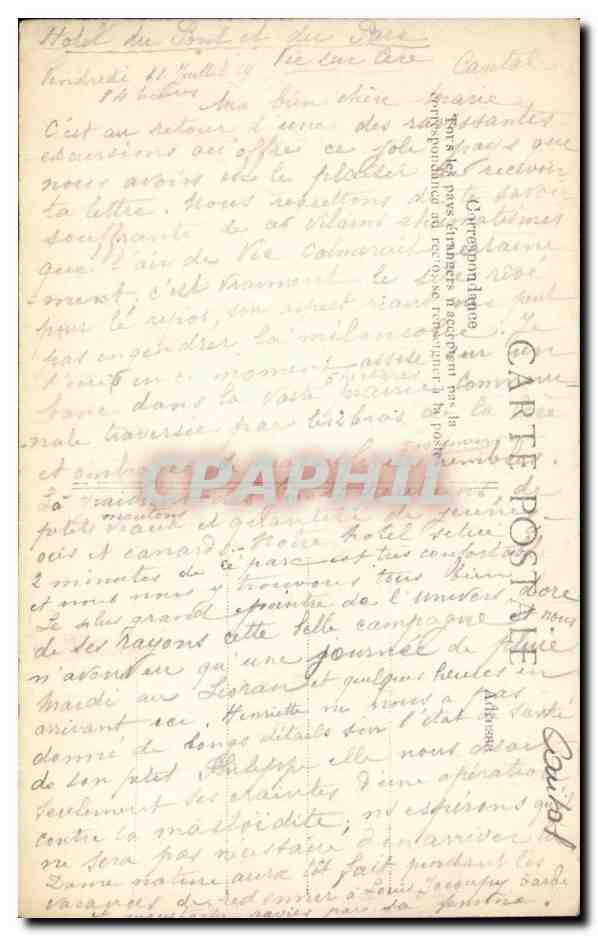 Hotel du Pont et du Parc
Vic sur Cère Cantal
Vendredi 21 Juillet 19
14 heures
Ma bien chère Marie
C'est au retour d'une des ravissantes
excursions qu'offre ce joli pays que
nous avons eu le plaisir de recevoir
ta lettre. Nous regrettons de te savoir
souffrante de ces vilains rhumatismes
que l'air de Vic calmerait
ment, c'est vraiment le rêvé
pour le repos son aspect riant ne peut
pas engendrer la mélancolie. Je
t'écris en ce moment assise sur un
banc dans la vaste prairie commu
nale traversée par les 2 bras de la Cère
et
petits veaux moutons et quantité de jeunes
oies et canards. Notre hotel situé à
2 minutes de ce parc est très confortable
et nous nous y trouvons tous bien
Le plus grand peintre de l'univers dore
de ses rayons cette belle campagne et nous
n'avons eu qu'une journée de pluie
Mardi au Lioran et quelques heures en
arrivant ici. Henriette ne nous a pas
donné de longs détails sur l'état de santé
de son petit Philippe elle nous disait
seulement ses craintes d'une opération
contre la mastoïdite; ns espérons qu'il
ne sera pas nécessaire d'en arriver là
Dame nature aura tôt fait pendant les
vacances de redonner à Louis Jacques
ravies par sa
CARTE POSTALE
Correspondance
Tous les pays étrangers n'acceptent pas la
correspondance au recto, se renseigner à la poste
Adresse
Cantal
CPAPHIL